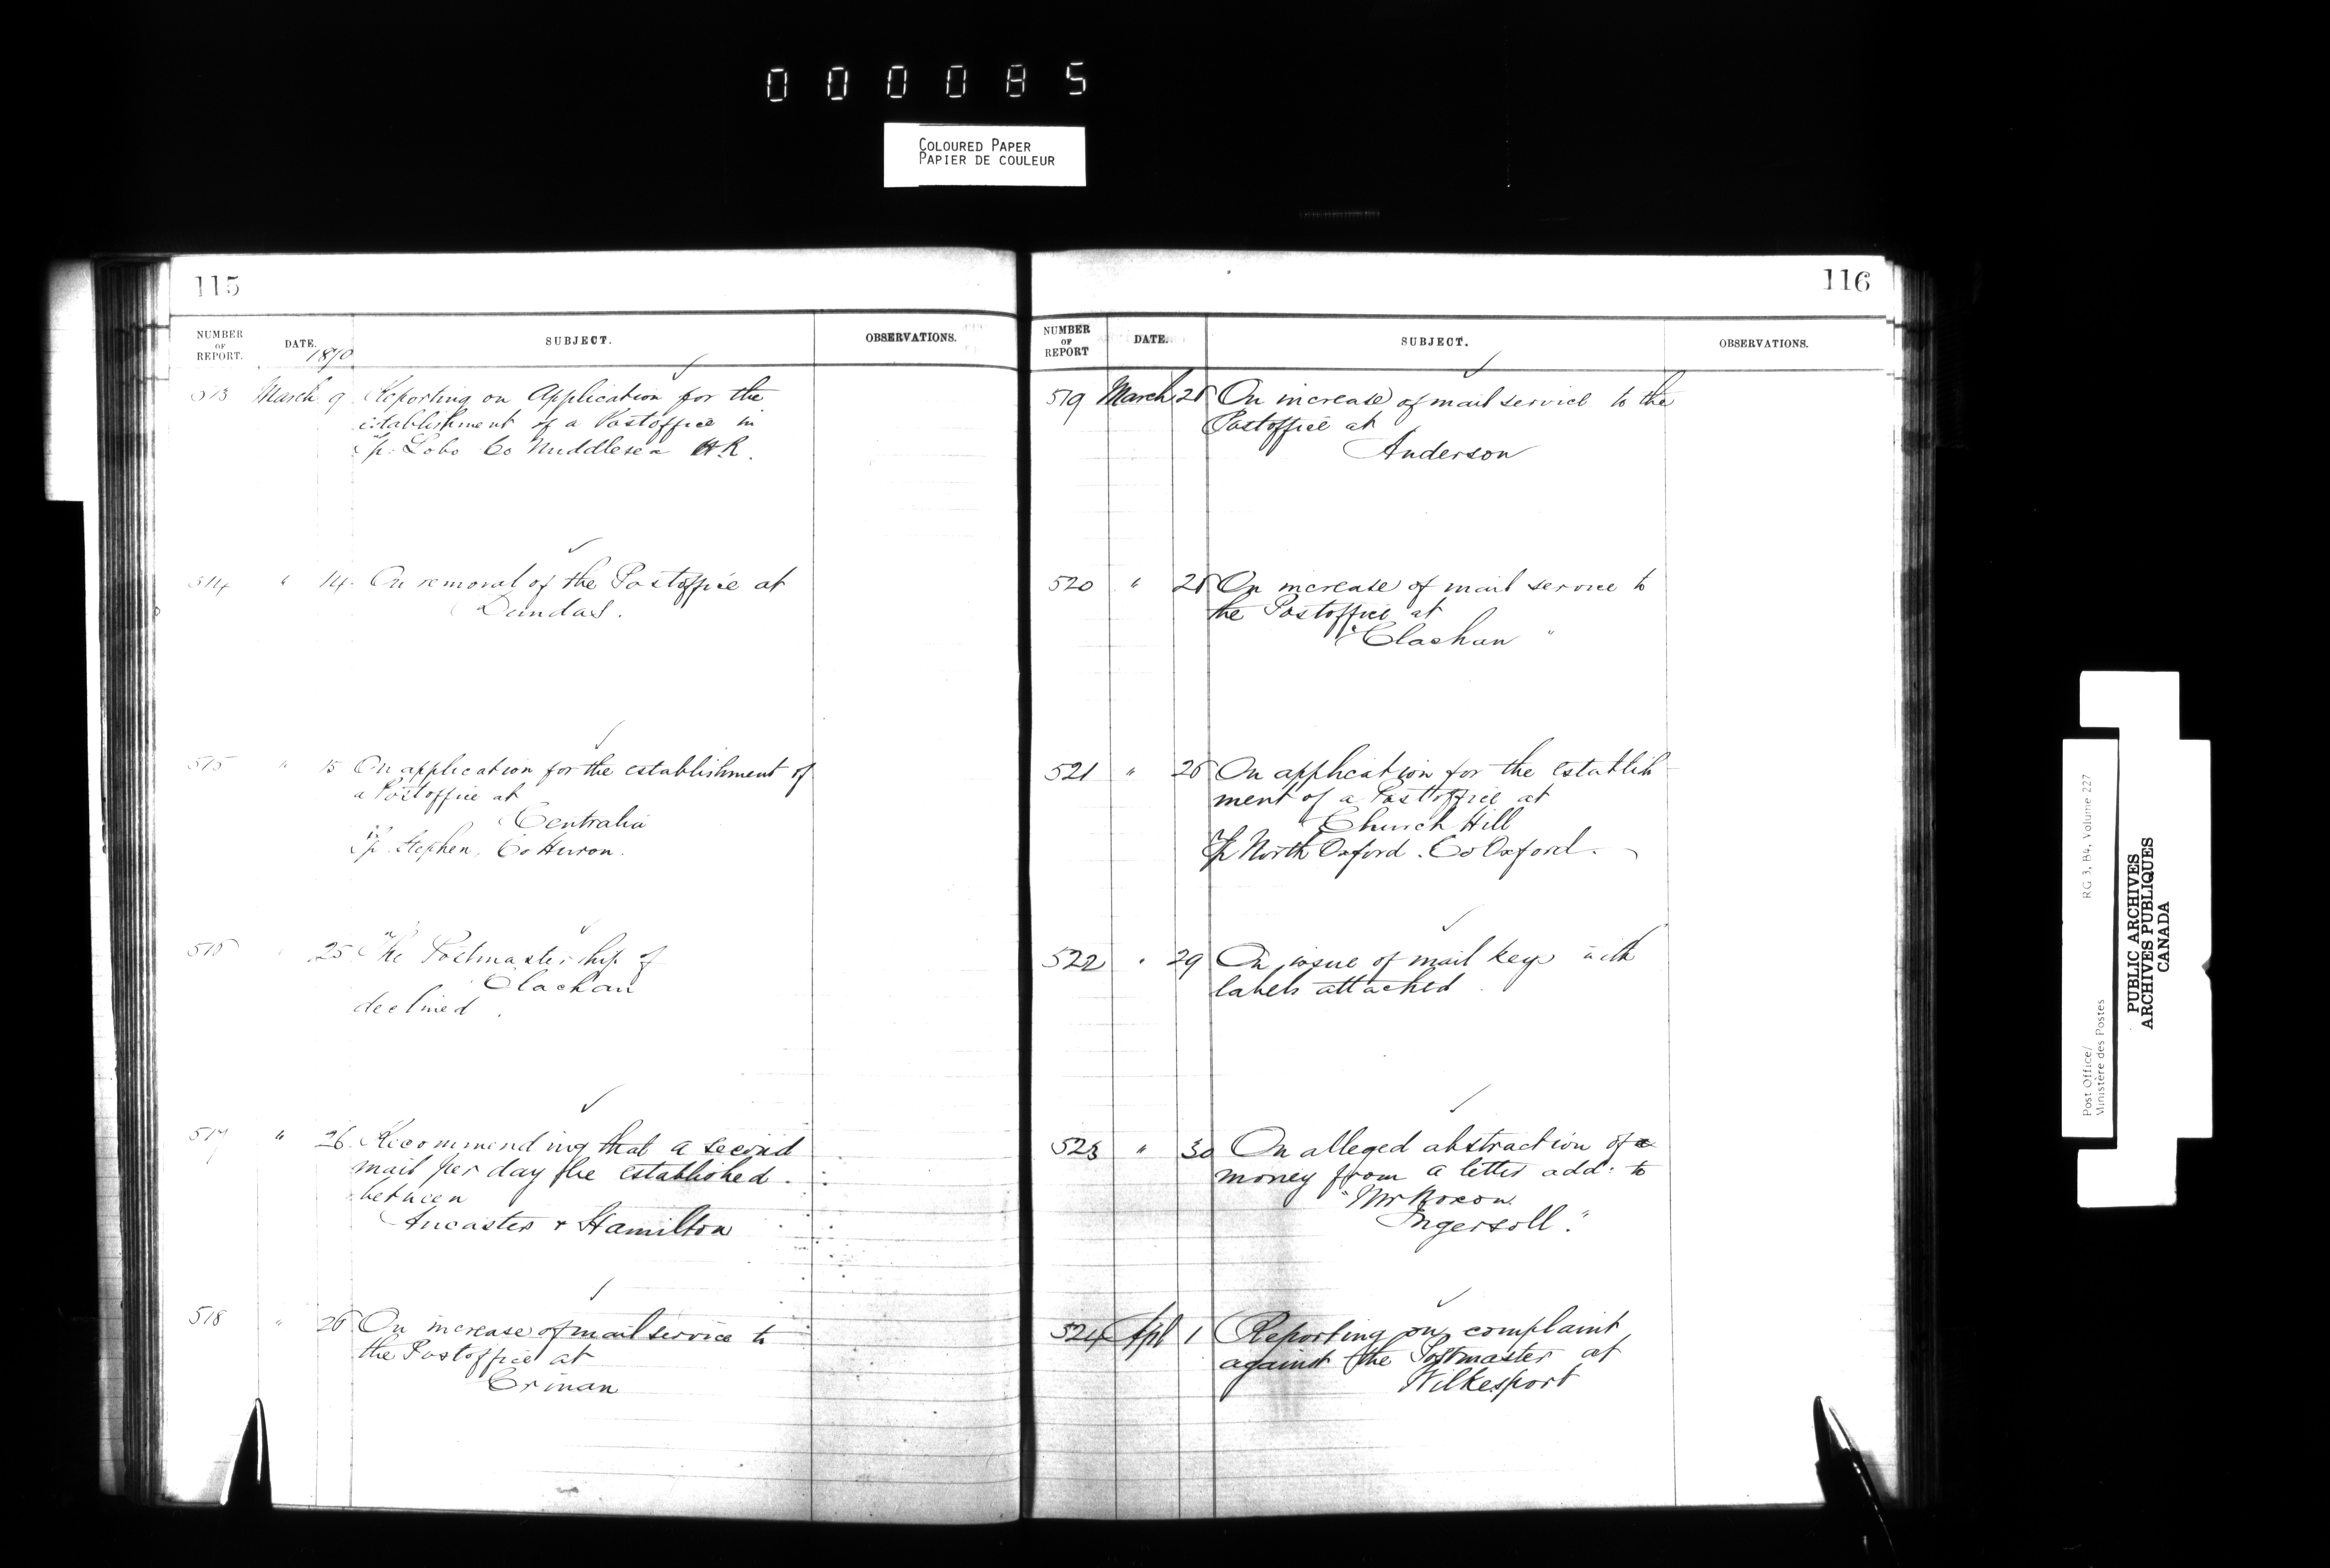 000085
COLOURED PAPER
PAPIER DE COULEUR
115
NUMBER OF REPORT. DATE. SUBJECT. OBSERVATIONS.
1870
513 March 9 Reporting on Application for the
establishment of a Postoffice in
Tp. Lobo Co Middlesex
514 " 14. On removal of the Postoffice at
Dundas.
515 " 15 On application for the establishment of
a Postoffice at
Centralia
Tp. Stephen, Co Huron.
516 " 25 The Postmastership of
Clachan
declined.
517 " 26. Recommending that a second
mail per day be established
between
Ancaster & Hamilton
518 " On increase of mail service to
the Postoffice at
Crinan
116
NUMBER OF REPORT DATE. SUBJECT. OBSERVATIONS.
519 March On increase of mail service to the
Postoffice at
Anderson
520 " On increase of mail service to
the Postoffice at
"Clachan"
521 " On application for the establish-
ment of a Postoffice at
"Church Hill
Tp North Oxford. Co Oxford.
522 " 29 On issue of mail keys with
labels attached.
523 " 30 On alleged abstraction of
money from a letter add: to
"Mr Noxon
Ingersoll."
524 Apl 1 Reporting on complaint
against the Postmaster at
Wilkesport
Post Office/
Ministère des Postes
RG 3, B4, Volume 227
PUBLIC ARCHIVES
ARCHIVES PUBLIQUES
CANADA